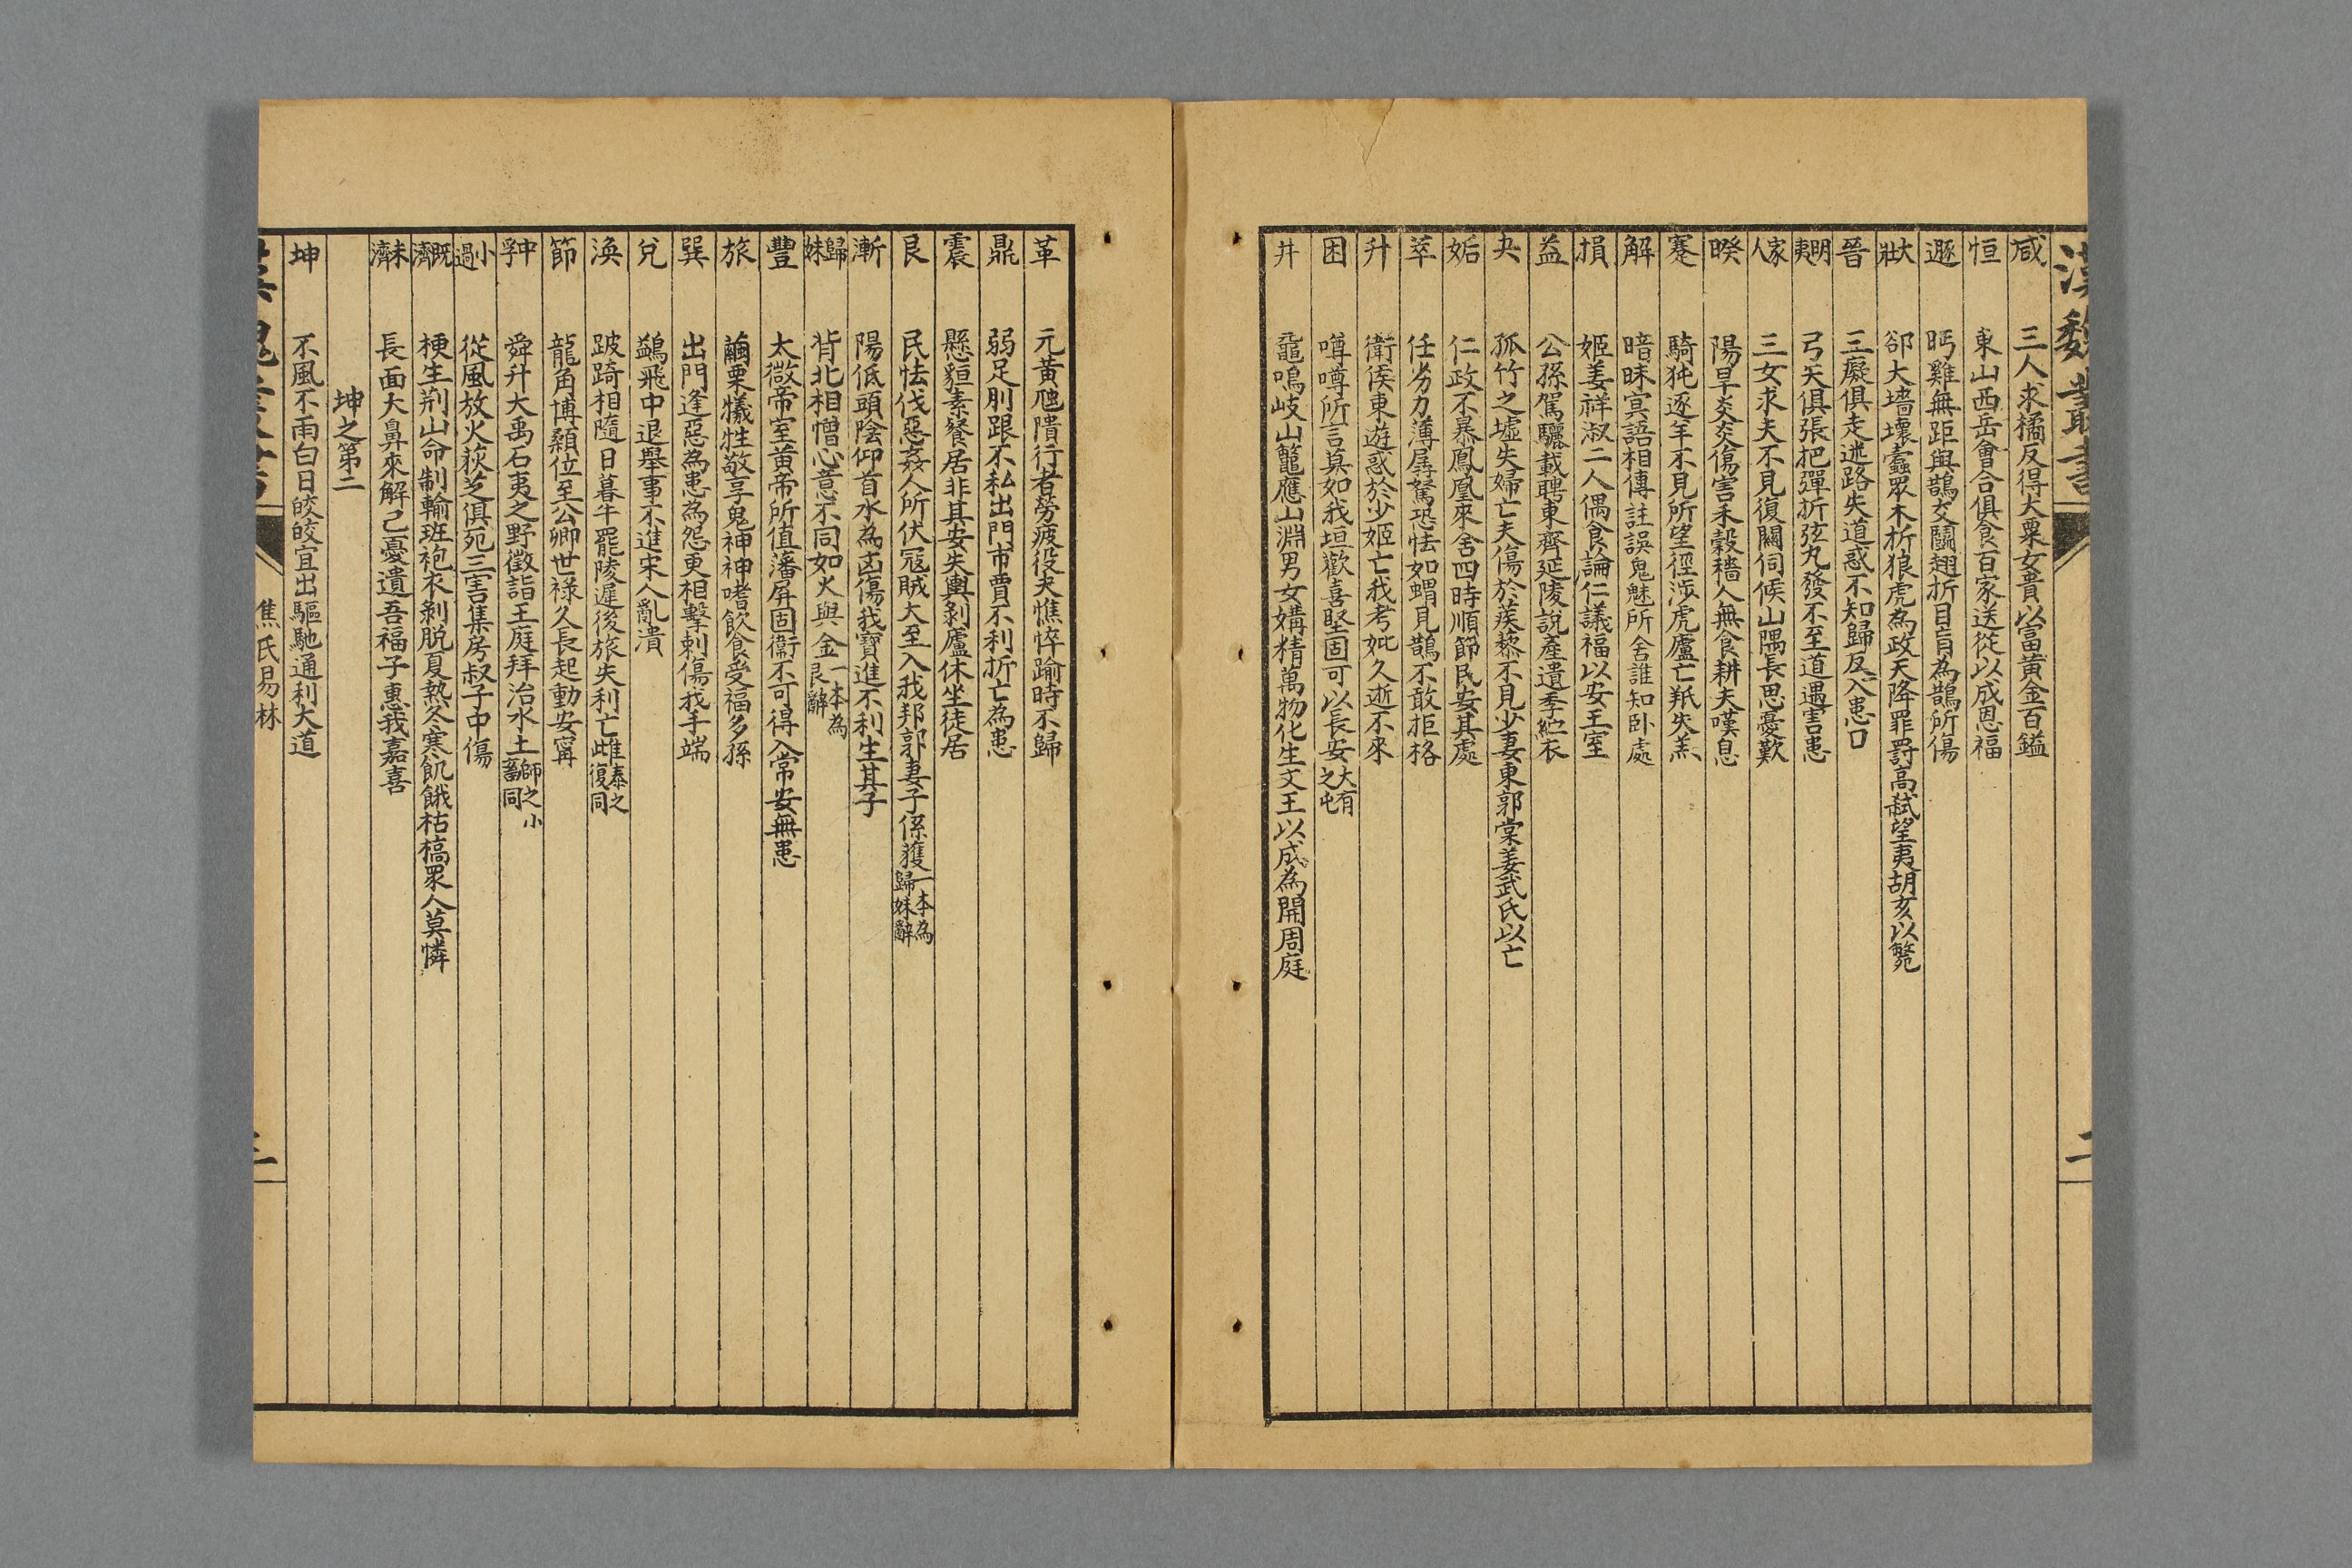 漢魏叢書
二
咸 三人求橘反得大栗女貴以富黃金百鎰
恒 東山西岳會合俱食百家送從以成恩福
遯 眄雞無距與鵲交鬭翅折目盲為鵲所傷
大壯 郤大墻壞蠹眾木折狼虎為政天降罪罰高弒望夷胡亥以斃
晉 三癡俱走迷路失道惑不知歸反入患口
明夷 弓矢俱張把彈折弦丸發不至道遇害患
家人 三女求夫不見復關伺候山隅長思憂歎
睽 陽旱炎炎傷害禾穀穡人無食耕夫嘆息
蹇 騎㹠逐羊不見所望徑涉虎廬亡羝失羔
解 暗昧冥語相傳詿誤鬼魅所舍誰知卧處
損 姬姜祥淑二人偶食論仁議福以安王室
益 公孫駕驪載聘東齊延陵說產遺季紵衣
夬 孤竹之墟失婦亡夫傷於蒺藜不見少妻東郭棠姜武氏以亡
姤 仁政不暴鳳凰來舍四時順節民安其處
萃 任劣力薄孱駑恐怯如蝟見鵲不敢拒格
升 衛侯東遊惑於少姬亡我考妣久逝不來
困 噂噂所言莫如我垣歡喜堅固可以長安大有之屯
井 黿鳴岐山鼈應山淵男女媾精萬物化生文王以成為開周庭
革 元黃虺隤行者勞疲役夫憔悴踰時不歸
鼎 弱足刖跟不私出門市賈不利折亡為患
震 懸貆素餐居非其安失輿剝廬休坐徒居
艮 民怯伐惡姦人所伏寇賊大至入我邦郭妻子係獲一本為歸妹辭
漸 陽低頭陰仰首水為凶傷我寶進不利生其子
歸妹 背北相憎心意不同如火與金一本為艮辭
豐 太微帝室黃帝所值藩屏固衞不可得入常安無患
旅 繭栗犧牲敬享鬼神神嗜飲食受福多孫
巽 出門逢惡為患為怨更相擊刺傷我手端
兌 鷁飛中退舉事不進宋人亂潰
渙 跛踦相隨日暮牛罷陵遲後旅失利亡雌泰之復同
節 龍角博顙位至公卿世祿久長起動安寧
中孚 舜升大禹石夷之野徵詣王庭拜治水土師之小畜同
小過 從風放火荻芝俱死三害集房叔子中傷
既濟 梗生荊山命制輸班袍衣剝脫夏熱冬寒飢餓枯槁眾人莫憐
未濟 長面大鼻來解己憂遺吾福子惠我嘉喜
坤之第二
坤 不風不雨白日皎皎宜出驅馳通利大道
漢魏叢書
焦氏易林
三